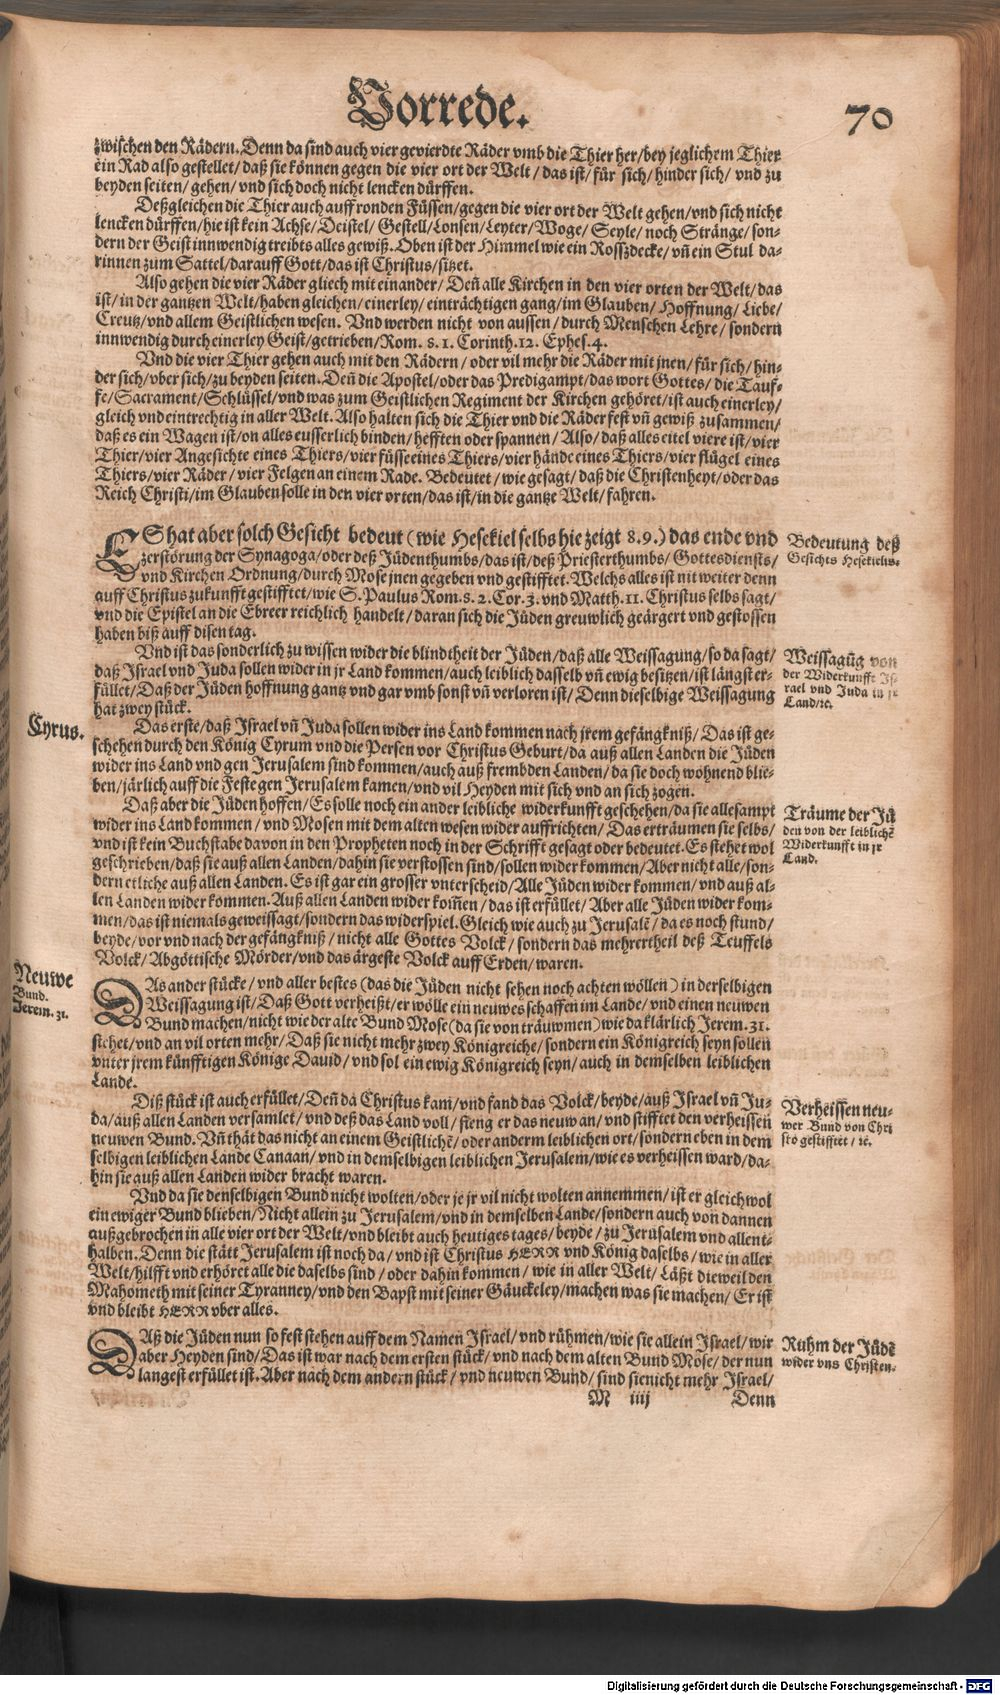 Vorrede.
70
zwischen den Rädern. Denn da sind auch vier gevierdte Räder vmb die Thier her/ bey jeglichem Thier
ein Rad also gestellet/ daß sie können gegen die vier ort der Welt/ das ist/ für sich/ hinder sich/ vnd zu
beyden seiten/ gehen/ vnd sich doch nicht lencken dürffen.
Deßgleichen die Thier auch auff ronden Füssen/ gegen die vier ort der Welt gehen/ vnd sich nicht
lencken dürffen/ hie ist kein Achse/ Deistel/ Gestell/ Lonsen/ Leyter/ Woge/ Seyle/ noch Stränge/ son-
dern der Geist innwendig treibts alles gewiß. Oben ist der Himmel wie ein Rosszdecke/ vñ ein Stul da-
rinnen zum Sattel/ darauff Gott/ das ist Christus/ sitzet.
Also gehen die vier Räder gliech mit einander/ Deñ alle Kirchen in den vier orten der Welt/ das
ist/ in der gantzen Welt/ haben gleichen/ einerley/ einträchtigen gang/ im Glauben/ Hoffnung/ Liebe/
Creutz/ vnd allem Geistlichen wesen. Vnd werden nicht von aussen/ durch Menschen Lehre/ sondern
innwendig durch einerley Geist/ getrieben/ Rom. 8. 1. Corinth. 12. Ephes. 4.
Vnd die vier Thier gehen auch mit den Rädern/ oder vil mehr die Räder mit jnen/ für sich/ hin-
der sich/ vber sich/ zu beyden seiten. Deñ die Apostel/ oder das Predigampt/ das wort Gottes/ die Tauf-
fe/ Sacrament/ Schlüssel/ vnd was zum Geistlichen Regiment der Kirchen gehöret/ ist auch einerley/
gleich vnd eintrechtig in aller Welt. Also halten sich die Thier vnd die Räder fest vñ gewiß zusammen/
daß es ein Wagen ist/ on alles eusserlich binden/ hefften oder spannen/ Also/ daß alles eitel viere ist/ vier
Thier/ vier Angesichte eines Thiers/ vier füsse eines Thiers/ vier hände eines Thiers/ vier flügel eines
Thiers/ vier Räder/ vier Felgen an einem Rade. Bedeutet/ wie gesagt/ daß die Christenheyt/ oder das
Reich Christi/ im Glauben solle in den vier orten/ das ist/ in die gantze Welt/ fahren.
ES hat aber solch Gesicht bedeut (wie Hesekiel selbs hie zeigt 8. 9.) das ende vnd
zerstörung der Synagoga/ oder deß Jüdenthumbs/ das ist/ deß Priesterthumbs/ Gottesdiensts/
vnd Kirchen Ordnung/ durch Mose jnen gegeben vnd gestifftet. Welchs alles ist nit weiter denn
auff Christus zukunfft gestifftet/ wie S. Paulus Rom. 8. 2. Cor. 3. vnd Matth. 11. Christus selbs sagt/
vnd die Epistel an die Ebreer reichlich handelt/ daran sich die Jüden greuwlich geärgert vnd gestossen
haben biß auff disen tag.
Bedeutung deß
Gesichts Hesekielis.
Vnd ist das sonderlich zu wissen wider die blindtheit der Jüden/ daß alle Weissagung/ so da sagt/
daß Israel vnd Juda sollen wider in jr Land kommen/ auch leiblich dasselb vñ ewig besitzen/ ist längst er-
füllet/ Daß der Jüden hoffnung gantz vnd gar vmb sonst vñ verloren ist/ Denn dieselbige Weissagung
hat zwey stück.
Weissagũg von
der Widerkunfft Is-
rael vnd Juda in jr
Land/ ꝛc.
Cyrus.
Das erste/ daß Israel vñ Juda sollen wider ins Land kommen nach jrem gefängkniß/ Das ist ge-
schehen durch den König Cyrum vnd die Persen vor Christus Geburt/ da auß allen Landen die Jüden
wider ins Land vnd gen Jerusalem sind kommen/ auch auß frembden Landen/ da sie doch wohnend blie-
ben/ järlich auff die Feste gen Jerusalem kamen/ vnd vil Heyden mit sich vnd an sich zogen.
Daß aber die Jüden hoffen/ Es solle noch ein ander leibliche widerkunfft geschehen/ da sie allesampt
wider ins Land kommen/ vnd Mosen mit dem alten wesen wider auffrichten/ Das erträumen sie selbs/
vnd ist kein Buchstabe davon in den Propheten noch in der Schrifft gesagt oder bedeutet. Es stehet wol
geschrieben/ daß sie auß allen Landen/ dahin sie verstossen sind/ sollen wider kommen/ Aber nicht alle/ son-
dern etliche auß allen Landen. Es ist gar ein grosser vnterscheid/ Alle Jüden wider kommen/ vnd auß al-
len Landen wider kommen. Auß allen Landen wider kom̃en/ das ist erfüllet/ Aber alle Jüden wider kom-
men/ das ist niemals geweissagt/ sondern das widerspiel. Gleich wie auch zu Jerusalẽ/ da es noch stund/
beyde/ vor vnd nach der gefängkniß/ nicht alle Gottes Volck/ sondern das mehrertheil deß Teuffels
Volck/ Abgöttische Mörder/ vnd das ärgeste Volck auff Erden/ waren.
Träume der Jü
den von der leiblichẽ
Widerkunfft in jr
Land.
Neuwe
Bund.
Jerem. 31.
DAs ander stücke/ vnd aller bestes (das die Jüden nicht sehen noch achten wöllen) in derselbigen
Weissagung ist/ Daß Gott verheißt/ er wölle ein neuwes schaffen im Lande/ vnd einen neuwen
Bund machen/ nicht wie der alte Bund Mose (da sie von träuwmen) wie da klärlich Jerem. 31.
stehet/ vnd an vil orten mehr/ Daß sie nicht mehr zwey Königreiche/ sondern ein Königreich seyn sollen
vnter jrem künfftigen Könige Dauid/ vnd sol ein ewig Königreich seyn/ auch in demselben leiblichen
Lande.
Diß stück ist auch erfüllet/ Deñ da Christus kam/ vnd fand das Volck/ beyde/ auß Israel vñ Ju-
da/ auß allen Landen versamlet/ vnd deß das Land voll/ fieng er das neuw an/ vnd stifftet den verheissen
neuwen Bund. Vñ thät das nicht an einem Geistlichẽ/ oder anderm leiblichen ort/ sondern eben in dem
selbigen leiblichen Lande Canaan/ vnd in demselbigen leiblichen Jerusalem/ wie es verheissen ward/ da-
hin sie auß allen Landen wider bracht waren.
Verheissen neu-
wer Bund von Chri
sto gestifftet/ ꝛc.
Vnd da sie denselbigen Bund nicht wolten/ oder je jr vil nicht wolten annemmen/ ist er gleichwol
ein ewiger Bund blieben/ Nicht allein zu Jerusalem/ vnd in demselben Lande/ sondern auch von dannen
außgebrochen in alle vier ort der Welt/ vnd bleibt auch heutiges tages/ beyde/ zu Jerusalem vnd allent-
halben. Denn die stätt Jerusalem ist noch da/ vnd ist Christus HERR vnd König daselbs/ wie in aller
Welt/ hilfft vnd erhöret alle die daselbs sind/ oder dahin kommen/ wie in aller Welt/ Läßt dieweil den
Mahometh mit seiner Tyranney/ vnd den Bapst mit seiner Gäuckeley/ machen was sie machen/ Er ist
vnd bleibt HERR vber alles.
DAß die Jüden nun so fest stehen auff dem Namen Israel/ vnd rühmen/ wie sie allein Israel/ wir
aber Heyden sind/ Das ist war nach dem ersten stück/ vnd nach dem alten Bund Mose/ der nun
langest erfüllet ist. Aber nach dem andern stück/ vnd neuwen Bund/ sind sie nicht mehr Israel/
Ruhm der Jüdẽ
wider vns Christen.
M iiij
Denn
Digitalisierung gefördert durch die Deutsche Forschungsgemeinschaft - DFG